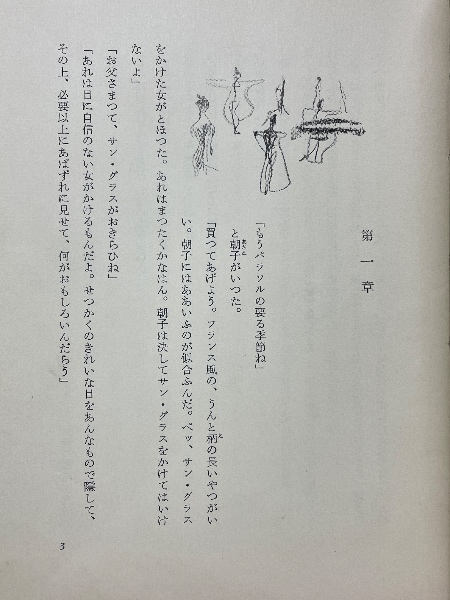 第一章
「もうパラソルの要る季節ね」
と朝子がいつた。
「買つてあげよう。フランス風の、うんと柄の長いやつがい
い。朝子にはああいふのが似合ふんだ。ペッ、サン・グラス
をかけた女がとほつた。あれはまつたくかなはん。朝子は決してサン・グラスをかけてはいけ
ないよ」
「お父さまつて、サン・グラスがおきらひね」
「あれは目に自信のない女がかけるもんだよ。せつかくのきれいな目をあんなもので隠して、
その上、必要以上にあばずれに見せて、何がおもしろいんだらう」
3